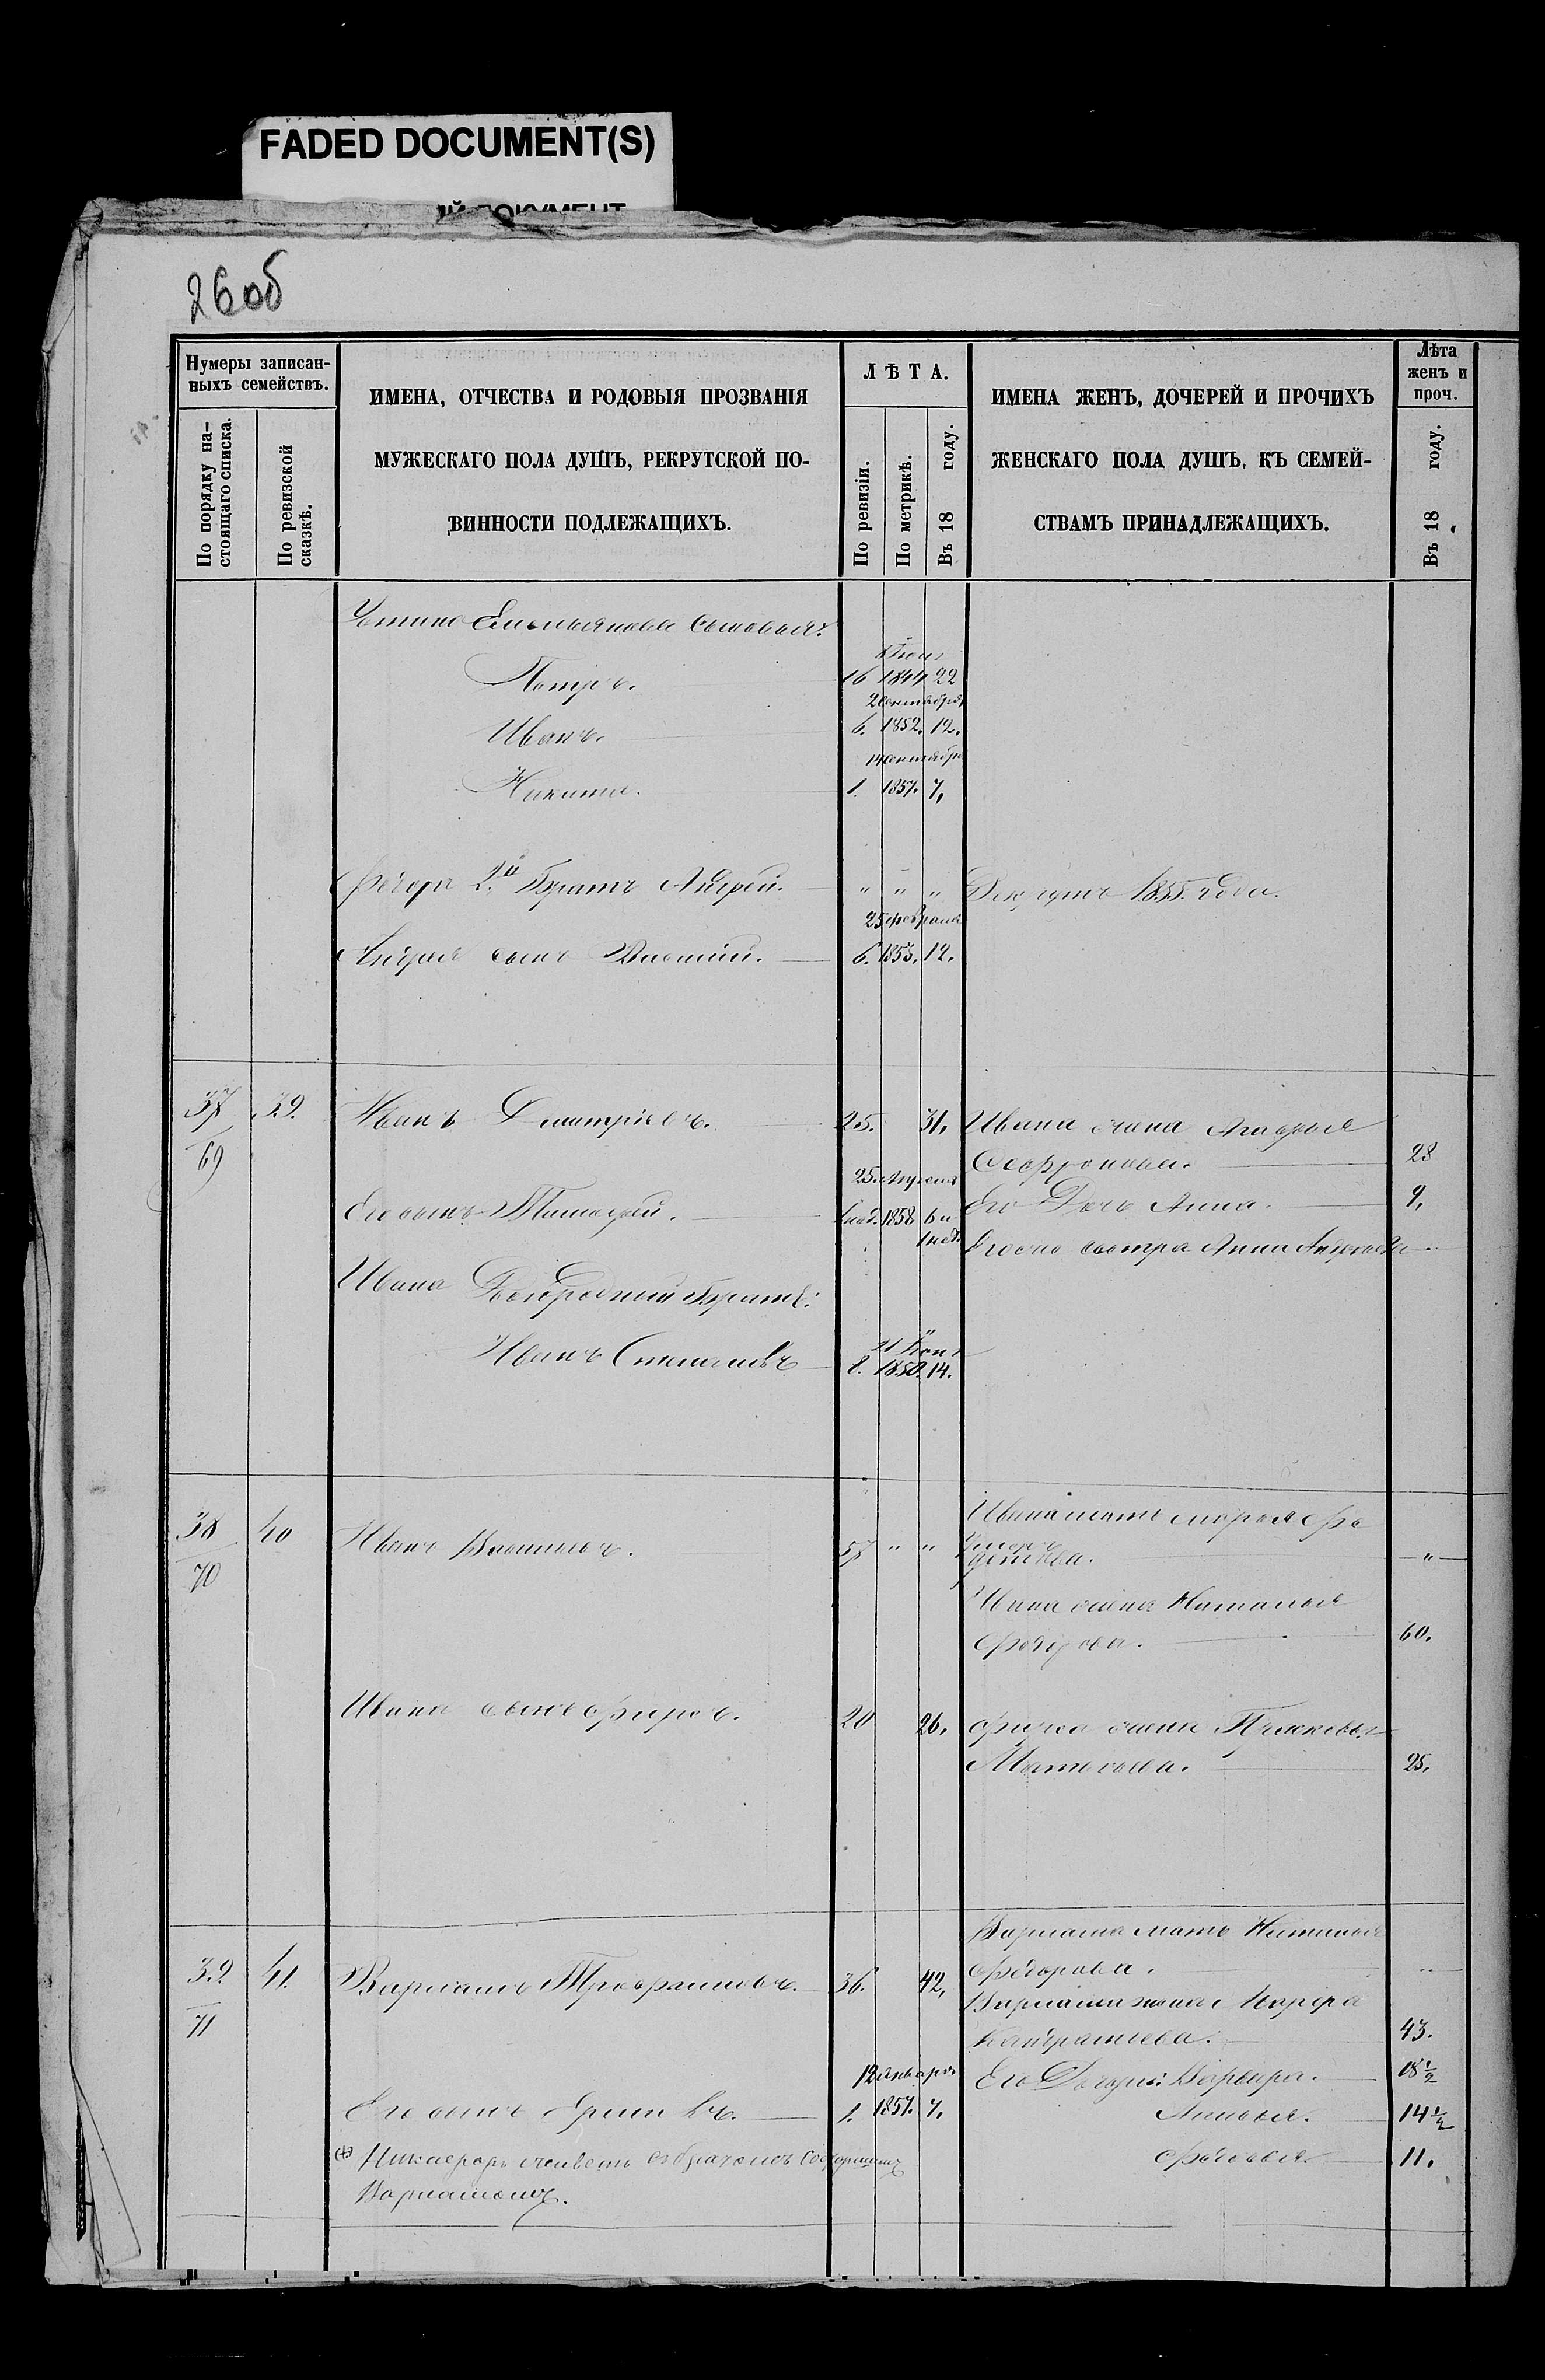 FADED DOCUMENT(S)
26об
Нумеры записан-
ныхъ семействъ.
По порядку на-
стоящаго списка.
По ревизской
сказкѣ.
ИМЕНА, ОТЧЕСТВА И РОДОВЫЯ ПРОЗВАНІЯ
МУЖЕСКАГО ПОЛА ДУШЪ, РЕКРУТСКОЙ ПО-
ВИННОСТИ ПОДЛЕЖАЩИХЪ.
ЛѢТА.
По ревизіи.
По метрикѣ.
Въ 18 году.
ИМЕНА ЖЕНЪ, ДОЧЕРЕЙ И ПРОЧИХЪ
ЖЕНСКАГО ПОЛА ДУШЪ, КЪ СЕМЕЙ-
СТВАМЪ ПРИНАДЛЕЖАЩИХЪ.
Лѣта
женъ и
проч.
Въ 18 году.
Емельянова сыновья:
Петръ. 16 1844 22
2 сентября
Иванъ. 6. 1852. 12.
14 сентября
Никита. 1. 1857. 7,
Федора 2й братъ Андрей. " " " Рекрутъ 1855. года.
25 февраля
Андрея сынъ Василій. 6. 1853. 12.
37 39. Иванъ Дмитріевъ. 25. 31, Ивана жена
69
Софронова. 28
25 Апреля
Его сынъ Тимофей. 1858 6 и Его Дочь Анна. 9,
1 нед.
сестра Анна Андреева
Ивана Двоюродный братъ:
Иванъ Степановъ 8. 1850. 14.
38 40 Иванъ Васильевъ. 58 " " Ивана мать Марья
70
Ивана жена Наталья
Федорова. 60.
Ивана сынъ Фирсъ. 20 26, Фирса жена Пелагея
Матвеева. 25,
Варлама мать Наталья
39 41. Варламъ Трофимовъ. 36. 42, Федорова.
71
Варлама жена Марфа
Кондратьева. 43.
12 января
Его Дочери: Варвара. 18½
Его сынъ 1. 1857. 7. Анисья. 14½
Федосья. 11.
Никифоръ живетъ съ братомъ
Варламомъ.